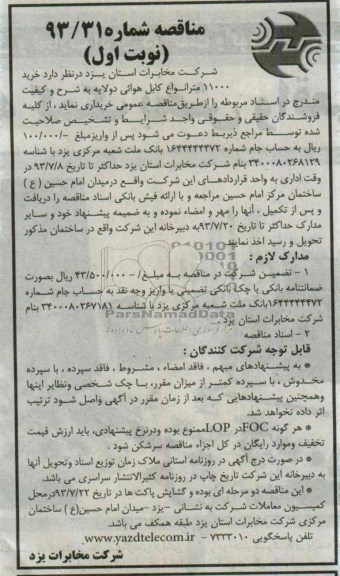 مناقصه شماره ۹۳/۳۱
(نوبت اول)
شرکت مخابرات استان یزد درنظر دارد خرید
۱۱۰۰۰ متر انواع کابل هوائی دولایه به شرح و کیفیت
مندرج در اسناد مربوطه را ازطریق مناقصه عمومی خریداری نماید ، از کلیه
فروشندگان حقیقی و حقوقی واجد شرایط و تشخیص صلاحیت
شده توسط مراجع ذیربط دعوت می شود پس از واریز مبلغ ۱۰۰/۰۰۰/-
ریال به حساب جام شماره ۱۶۴۴۴۴۴۴۷۲ بانک ملت شعبه مرکزی یزد با شناسه
۳۴۰۰۰۸۰۲۶۸۱۲۹ بنام شرکت مخابرات استان یزد حداکثر تا تاریخ ۹۳/۷/۸ در
وقت اداری به واحد قراردادهای این شرکت واقع درمیدان امام حسین ( ع )
ساختمان مرکز امام حسین مراجعه و با ارائه فیش بانکی اسناد مناقصه را دریافت
و پس از تکمیل ، آنها را مهر و امضاء نموده و به ضمیمه پیشنهاد خود و سایر
مدارک حداکثر تا تاریخ ۹۳/۷/۲۰ به دبیرخانه این شرکت واقع در ساختمان مذکور
تحویل و رسید اخذ نمایند.
مدارک لازم :
۱ - تضمین شرکت در مناقصه به مبلغ /- ۴۳/۵۰۰/۰۰۰ ریال بصورت
ضمانتنامه بانکی یا چک بانکی تضمینی یا واریز وجه نقد به حساب جام شماره
۱۶۴۴۴۴۴۴۷۲ بانک ملت شعبه مرکزی یزد با شناسه ۳۴۰۰۰۸۰۲۶۷۱۸۱ بنام
شرکت مخابرات استان یزد
ParsNamadData
۲ - اسناد مناقصه
قابل توجه شرکت کنندگان :
● به پیشنهادهای مبهم ، فاقد امضاء ، مشروط ، فاقد سپرده ، با سپرده
مخدوش ، با سپرده کمتر از میزان مقرر، با چک شخصی ونظایر اینها
وهمچنین پیشنهادهایی که بعد از زمان مقرر در آگهی واصل شود ترتیب
اثر داده نخواهد شد.
● هر گونه FOC در LOP ممنوع بوده ودرنرخ پیشنهادی، باید ارزش قیمت
تخفیف وموارد رایگان در کل اجزاء مناقصه سرشکن شود .
● در صورت درج آگهی در روزنامه استانی ملاک زمان توزیع اسناد وتحویل آنها
به دبیرخانه این شرکت تاریخ چاپ در روزنامه کثیرالانتشار سراسری می باشد.
● این مناقصه دو مرحله ای بوده و گشایش پاکت ها در تاریخ ۹۳/۷/۲۲ درمحل
کمیسیون معاملات شرکت به نشانی -یزد -میدان امام حسین(ع ) ساختمان
مرکزی شرکت مخابرات استان یزد طبقه همکف می باشد.
تلفن پاسخگویی ۷۲۳۳۰۱۰ - www.yazdtelecom.ir
شرکت مخابرات یزد